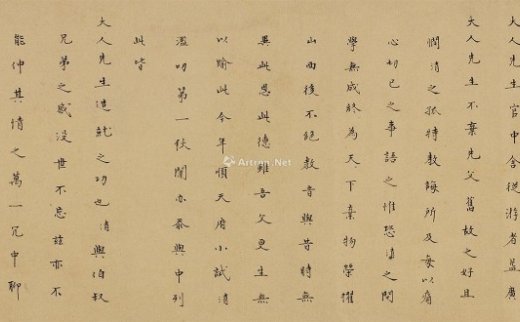 大人先生官中舍從游者益廣
大人先生不棄先父舊故之好且
憫清之孤特教誨所及每以有
心切己之事語之惟恐清之問
學無成終為天下棄物榮擢
山西後不絕教音與昔時無
異此恩此德雖吾父更生無
以踰此今年愼天府小試清
濫功第一伏聞亦忝與中列
此皆
大人先生造就之功也清與伯叔
兄弟之感没世不忘玆亦不
能伸其情之萬一冗中聊
Artron.Net